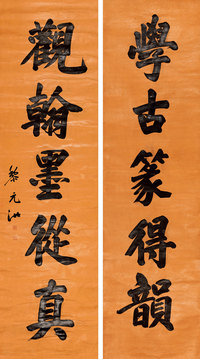 學古篆得韻
觀翰墨從真
黎元洪